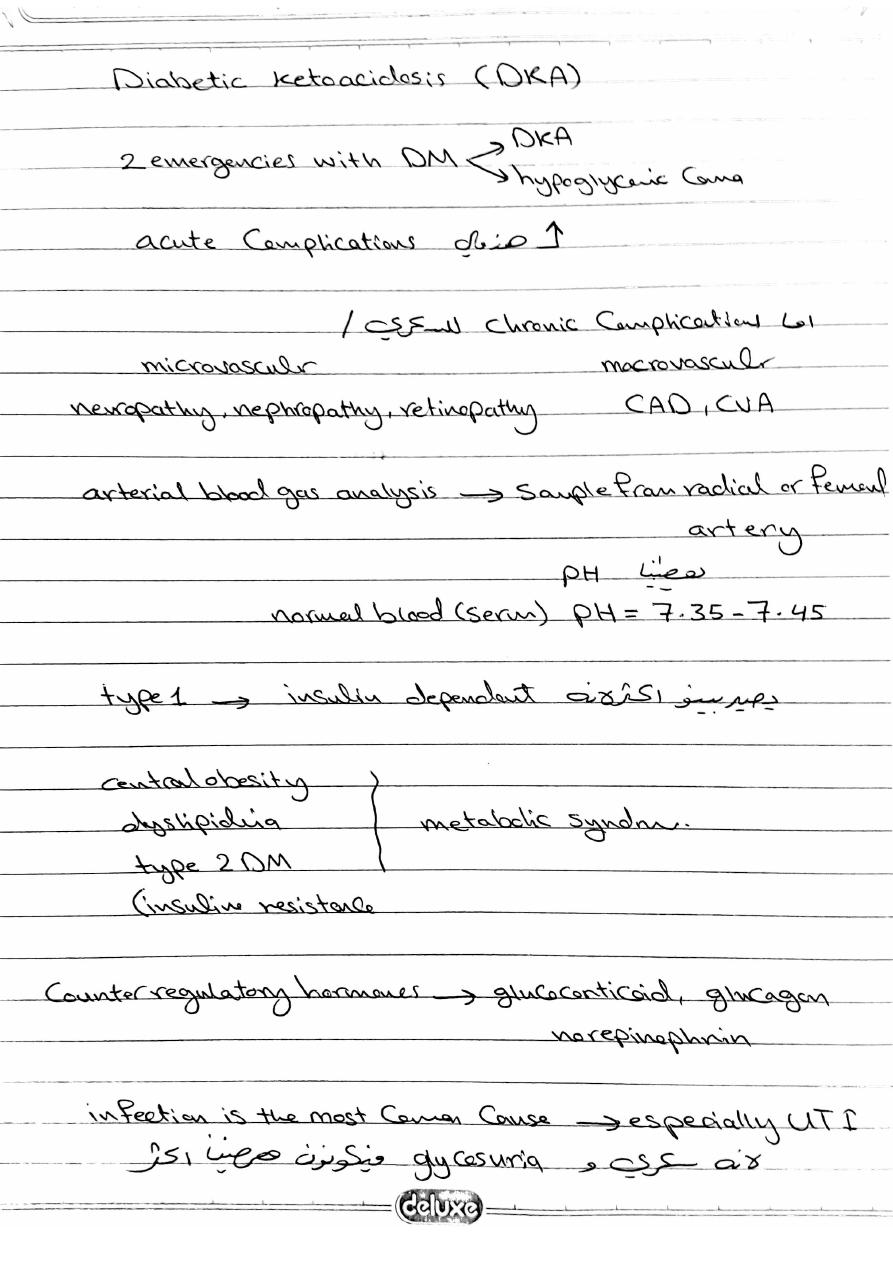 Diabetic ketoacidosis (DKA)
2 emergencies with DM → DKA
→ hypoglycemic Coma
acute Complications هذول ↑
اما chronic Complications للسكري /
microvasculr macrovasculr
neuropathy, nephropathy, retinopathy CAD, CVA
arterial blood gas analysis → Sample from radial or femoral
artery
PH
normal blood (serum) PH = 7.35 - 7.45
type 1 → insulin dependent
central obesity
dyslipidemia
metabolic syndrom.
type 2 DM
(insuline resistance
Counter regulatory hormones → glucocorticoid, glucagon
norepinephrin
infection is the most Common Cause → especially UTI
لانه سكري و glycosuria فيكونون اكثر
deluxe